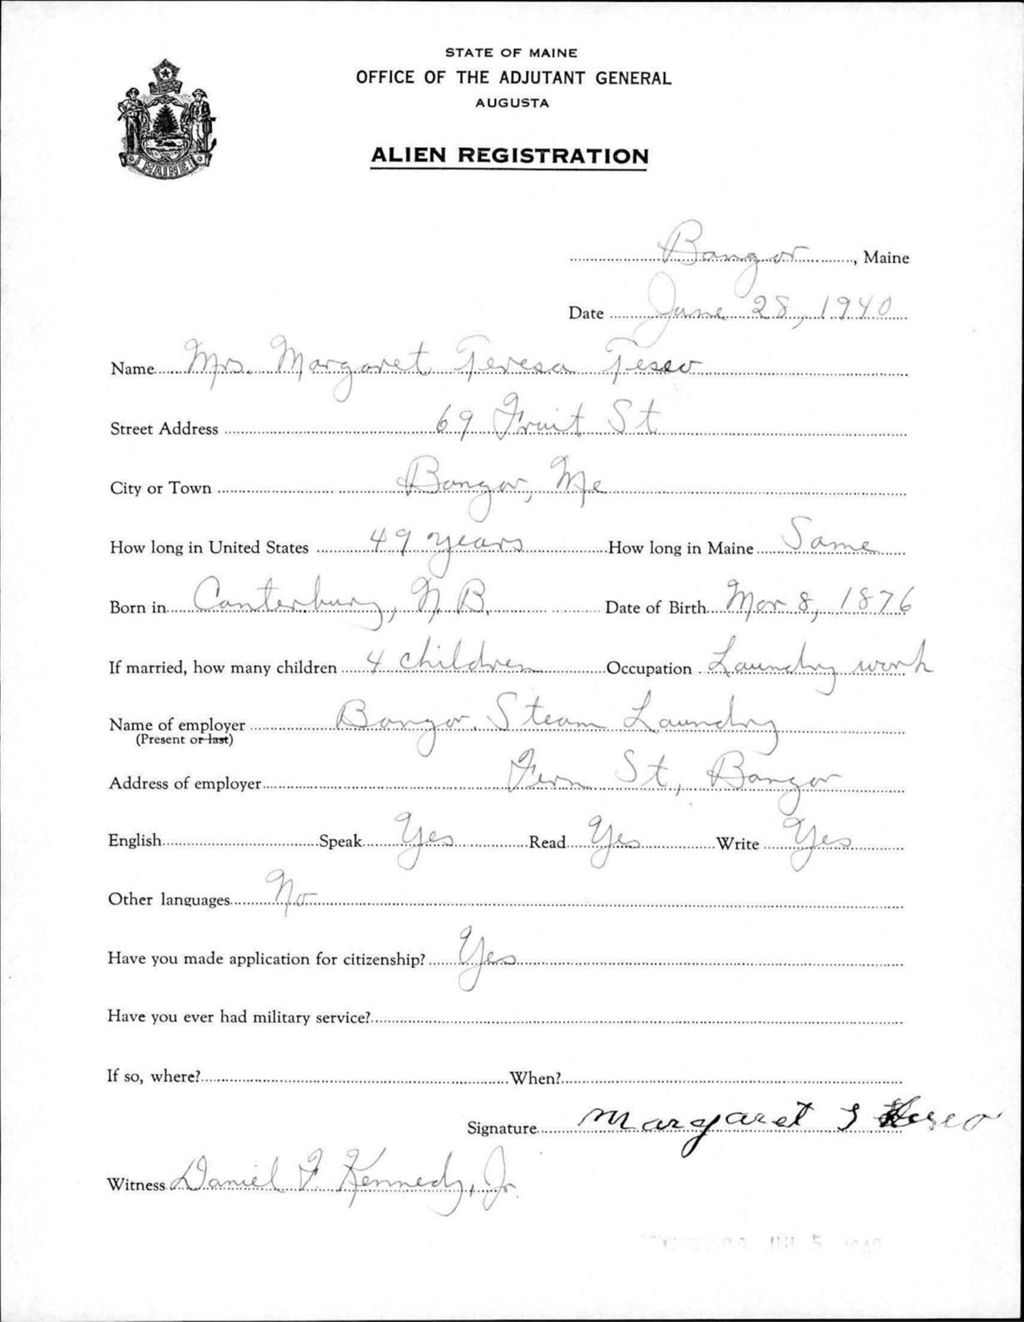 STATE OF MAINE
OFFICE OF THE ADJUTANT GENERAL
AUGUSTA
ALIEN REGISTRATION
MAINE
Bangor, Maine
Date June 28, 1940
Name Mrs. Margaret Teresa Teseo
Street Address 69 Fruit St
City or Town Bangor, Me
How long in United States 49 years How long in Maine Same
Born in Canterbury, N.B. Date of Birth Mar 8, 1876
If married, how many children 4 children Occupation Laundry work
Name of employer Bangor Steam Laundry
(Present or last)
Address of employer Fern St, Bangor
English Speak Yes Read Yes Write Yes
Other languages No
Have you made application for citizenship? Yes
Have you ever had military service?
If so, where? When?
Signature Margaret T Teseo
Witness Daniel F Kennedy, Jr.
JUL 5 1940